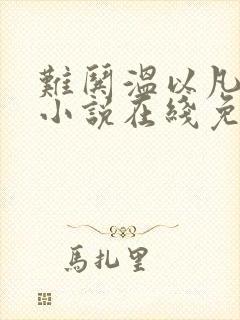 難鬨溫以凡
小說在綫免
馬扎里